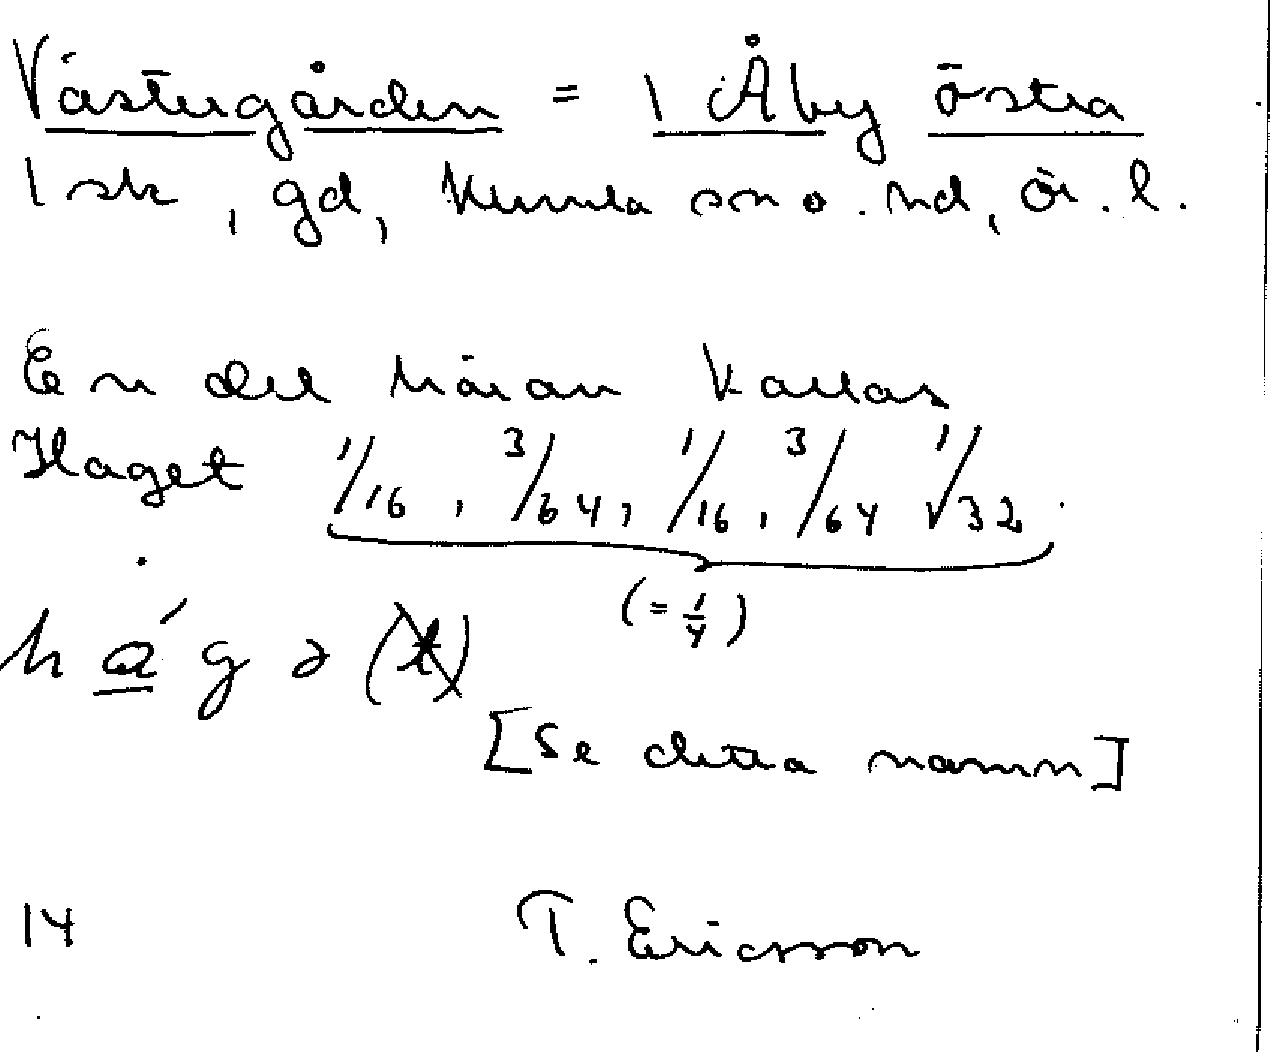 Västergården = 1 Åby östra
1 sk, gd, Kumla sn o. hd, Ör. l.
En del härav kallas
Haget 1/16, 3/64, 1/16, 3/64 1/32
(= 1/4)
há́gə(t)
[Se detta namn]
14 T. Ericsson